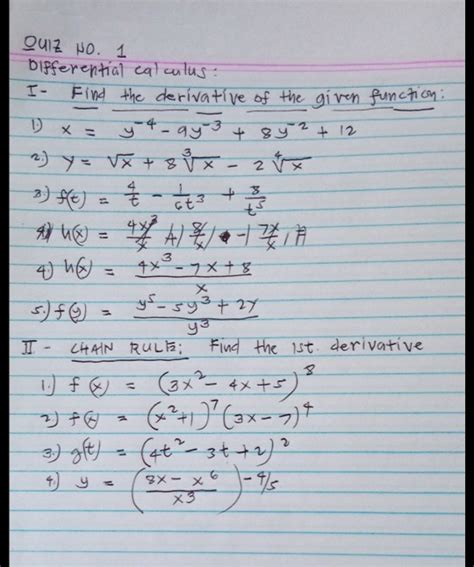 QUIZ NO. 1
Differential calculus:
I - Find the derivative of the given function:
1) x = y⁻⁴ - 9y⁻³ + 8y⁻² + 12
2.) y = √x + 8∛x - 2∜x
3.) f(t) = 4/t - 1/6t³ + 8/t⁵
h(x) = 4x³/x 8/x - 7x/x
4.) h(x) = (4x³ - 7x + 8)/x
5.) f(y) = (y⁵ - 5y³ + 2y)/y³
II - CHAIN RULE: Find the 1st. derivative
1.) f(x) = (3x² - 4x + 5)⁸
2) f(x) = (x²+1)⁷ (3x - 7)⁴
3.) g(t) = (4t² - 3t + 2)²
4) y = ((8x - x⁶)/x³)^-4/5